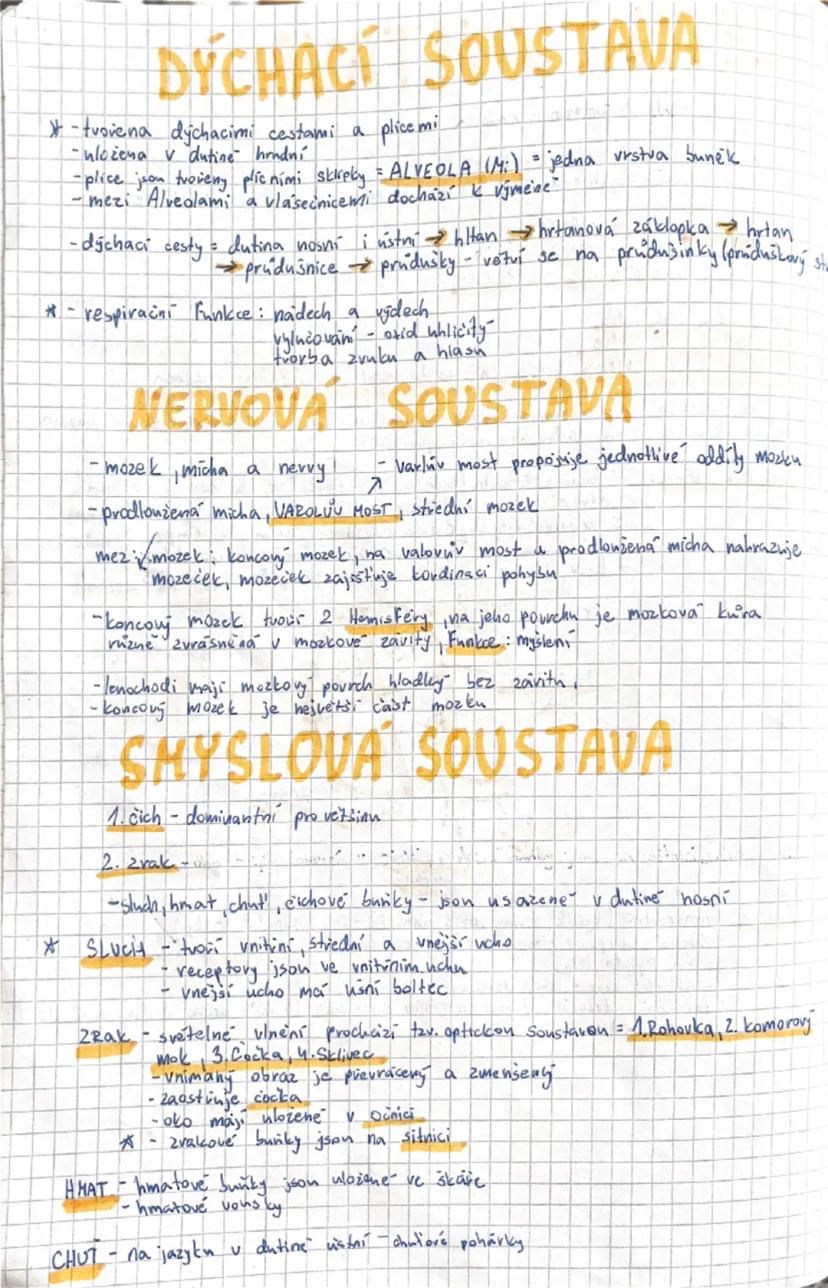 DÝCHACÍ SOUSTAVA
* - tvořena dýchacími cestami a plícemi
- uložena v dutině hrudní
- plíce jsou tvořeny plicními sklípky = ALVEOLA (Mi) = jedna vrstva buněk
- mezi Alveolami a vlásečnicemi dochází k výměně
- dýchací cesty = dutina nosní i ústní → hltan → hrtanová záklopka → hrtan
→ průdušnice → průdušky - větví se na průdušinky (průduškový
* - respirační funkce: nádech a výdech
vylučování - oxid uhličitý
tvorba zvuku a hlasu
NERVOVÁ SOUSTAVA
- mozek, mícha a nervy
- Varlův most propojuje jednotlivé oddíly mozku
- prodloužená mícha, VAROLŮV MOST, střední mozek
mezi mozek: koncový mozek, na valovův most a prodloužená mícha nahrazuje
mozeček, mozeček zajišťuje kordinaci pohybu
- koncový mozek tvoří 2 Hemisféry, na jeho povrchu je mozková kůra
různě zvrásněná v mozkové závity, Funkce: myšlení
- lenochodi mají mozkový povrch hladký bez závitů,
- koncový mozek je největší část mozku
SMYSLOVÁ SOUSTAVA
1. čich - dominantní pro většinu
2. zrak -
- sluch, hmat, chuť, čichové buňky - jsou usazené v dutině nosní
* SLUCH - tvoří vnitřní, střední a vnější ucho
- receptory jsou ve vnitřním uchu
- vnější ucho má ušní boltec
ZRAK - světelné vlnění prochází tzv. optickou soustavou = 1. Rohovka, 2. komorový
mok, 3. Čočka, 4. Sklivec
- vnímaný obraz je převrácený a zmenšený
- zaostřuje čočka
- oko mají uložené v očnici
* - zrakové buňky jsou na sítnici
HMAT - hmatové buňky jsou uložené ve škáře
- hmatové vousky
CHUŤ - na jazyku v dutině ústní - chuťové pohárky